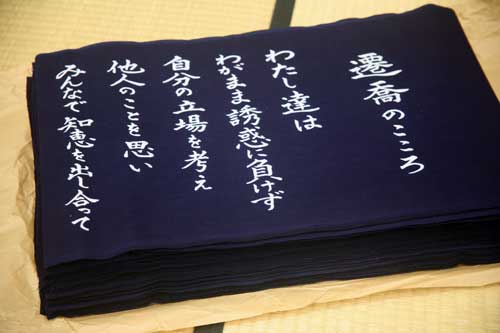 遷喬のこころ
わたし達は
わがまま誘惑に負けず
自分の立場を考え
他人のことを思い
みんなで知恵を出し合って